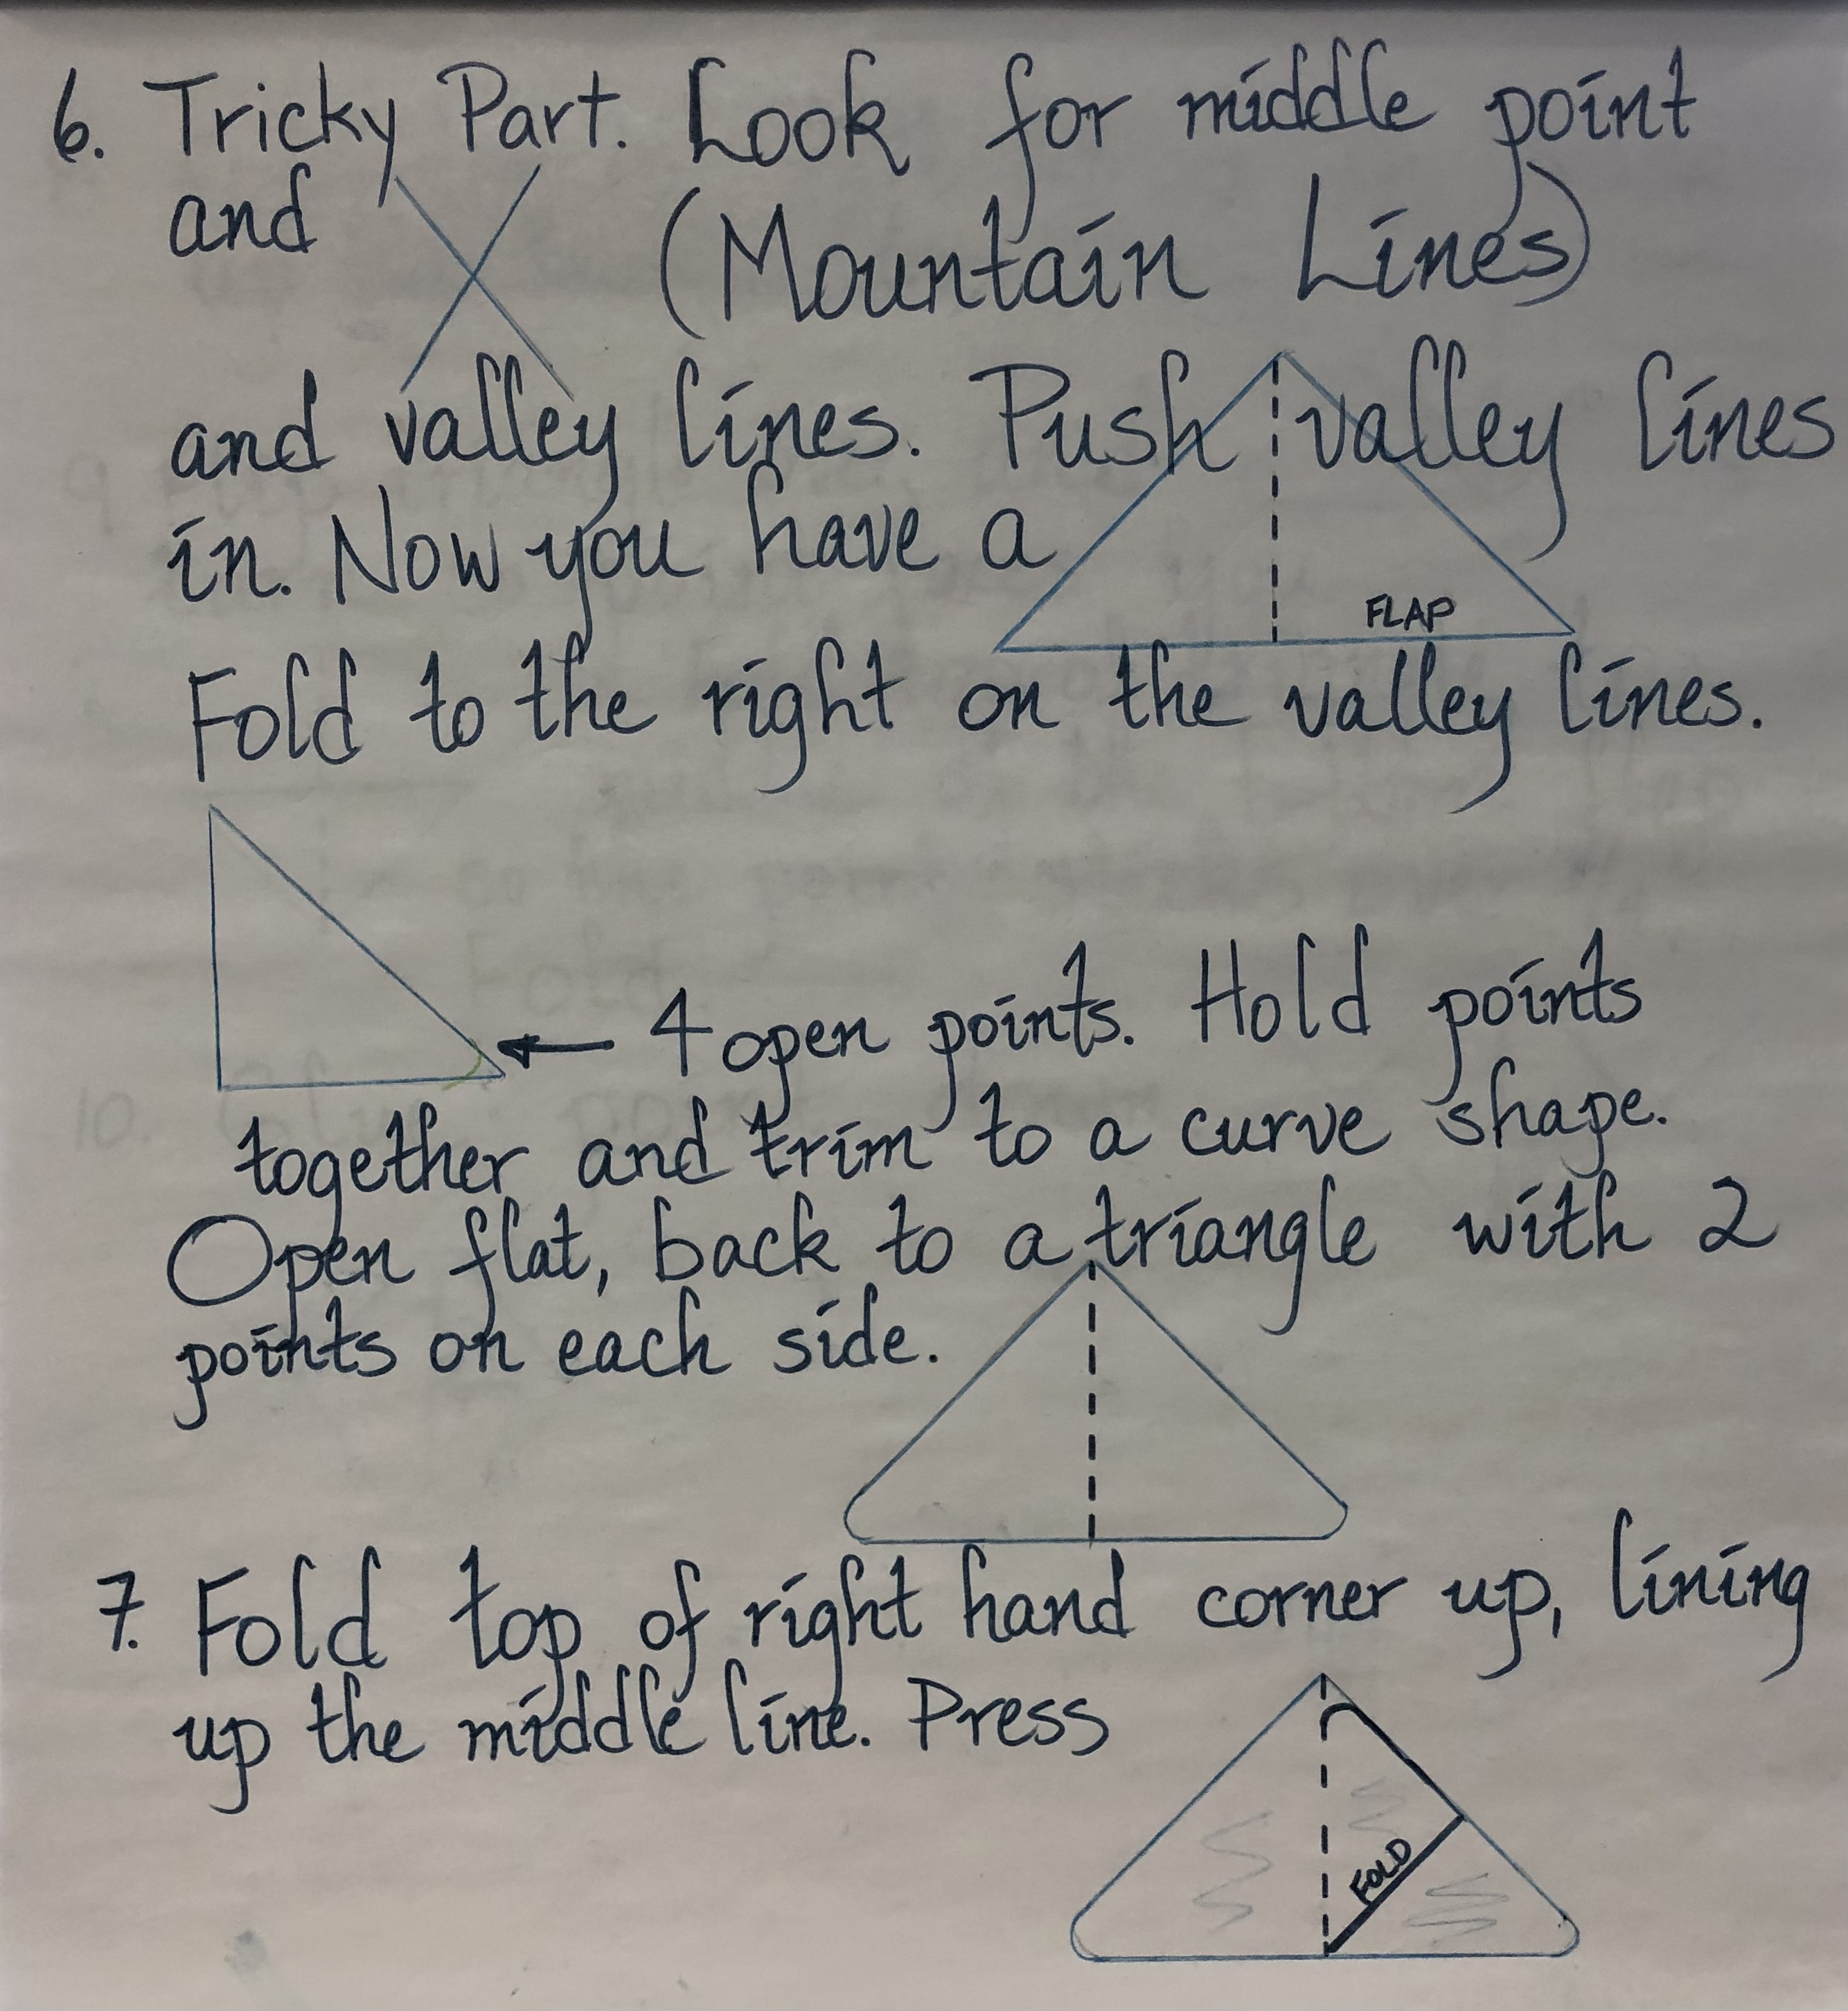 6. Tricky Part. Look for middle point
and (Mountain Lines)
and valley lines. Push valley lines
in. Now you have a
FLAP
Fold to the right on the valley lines.
4 open points. Hold points
together and trim to a curve shape.
Open flat, back to a triangle with 2
points on each side.
7. Fold top of right hand corner up, lining
up the middle line. Press
FOLD